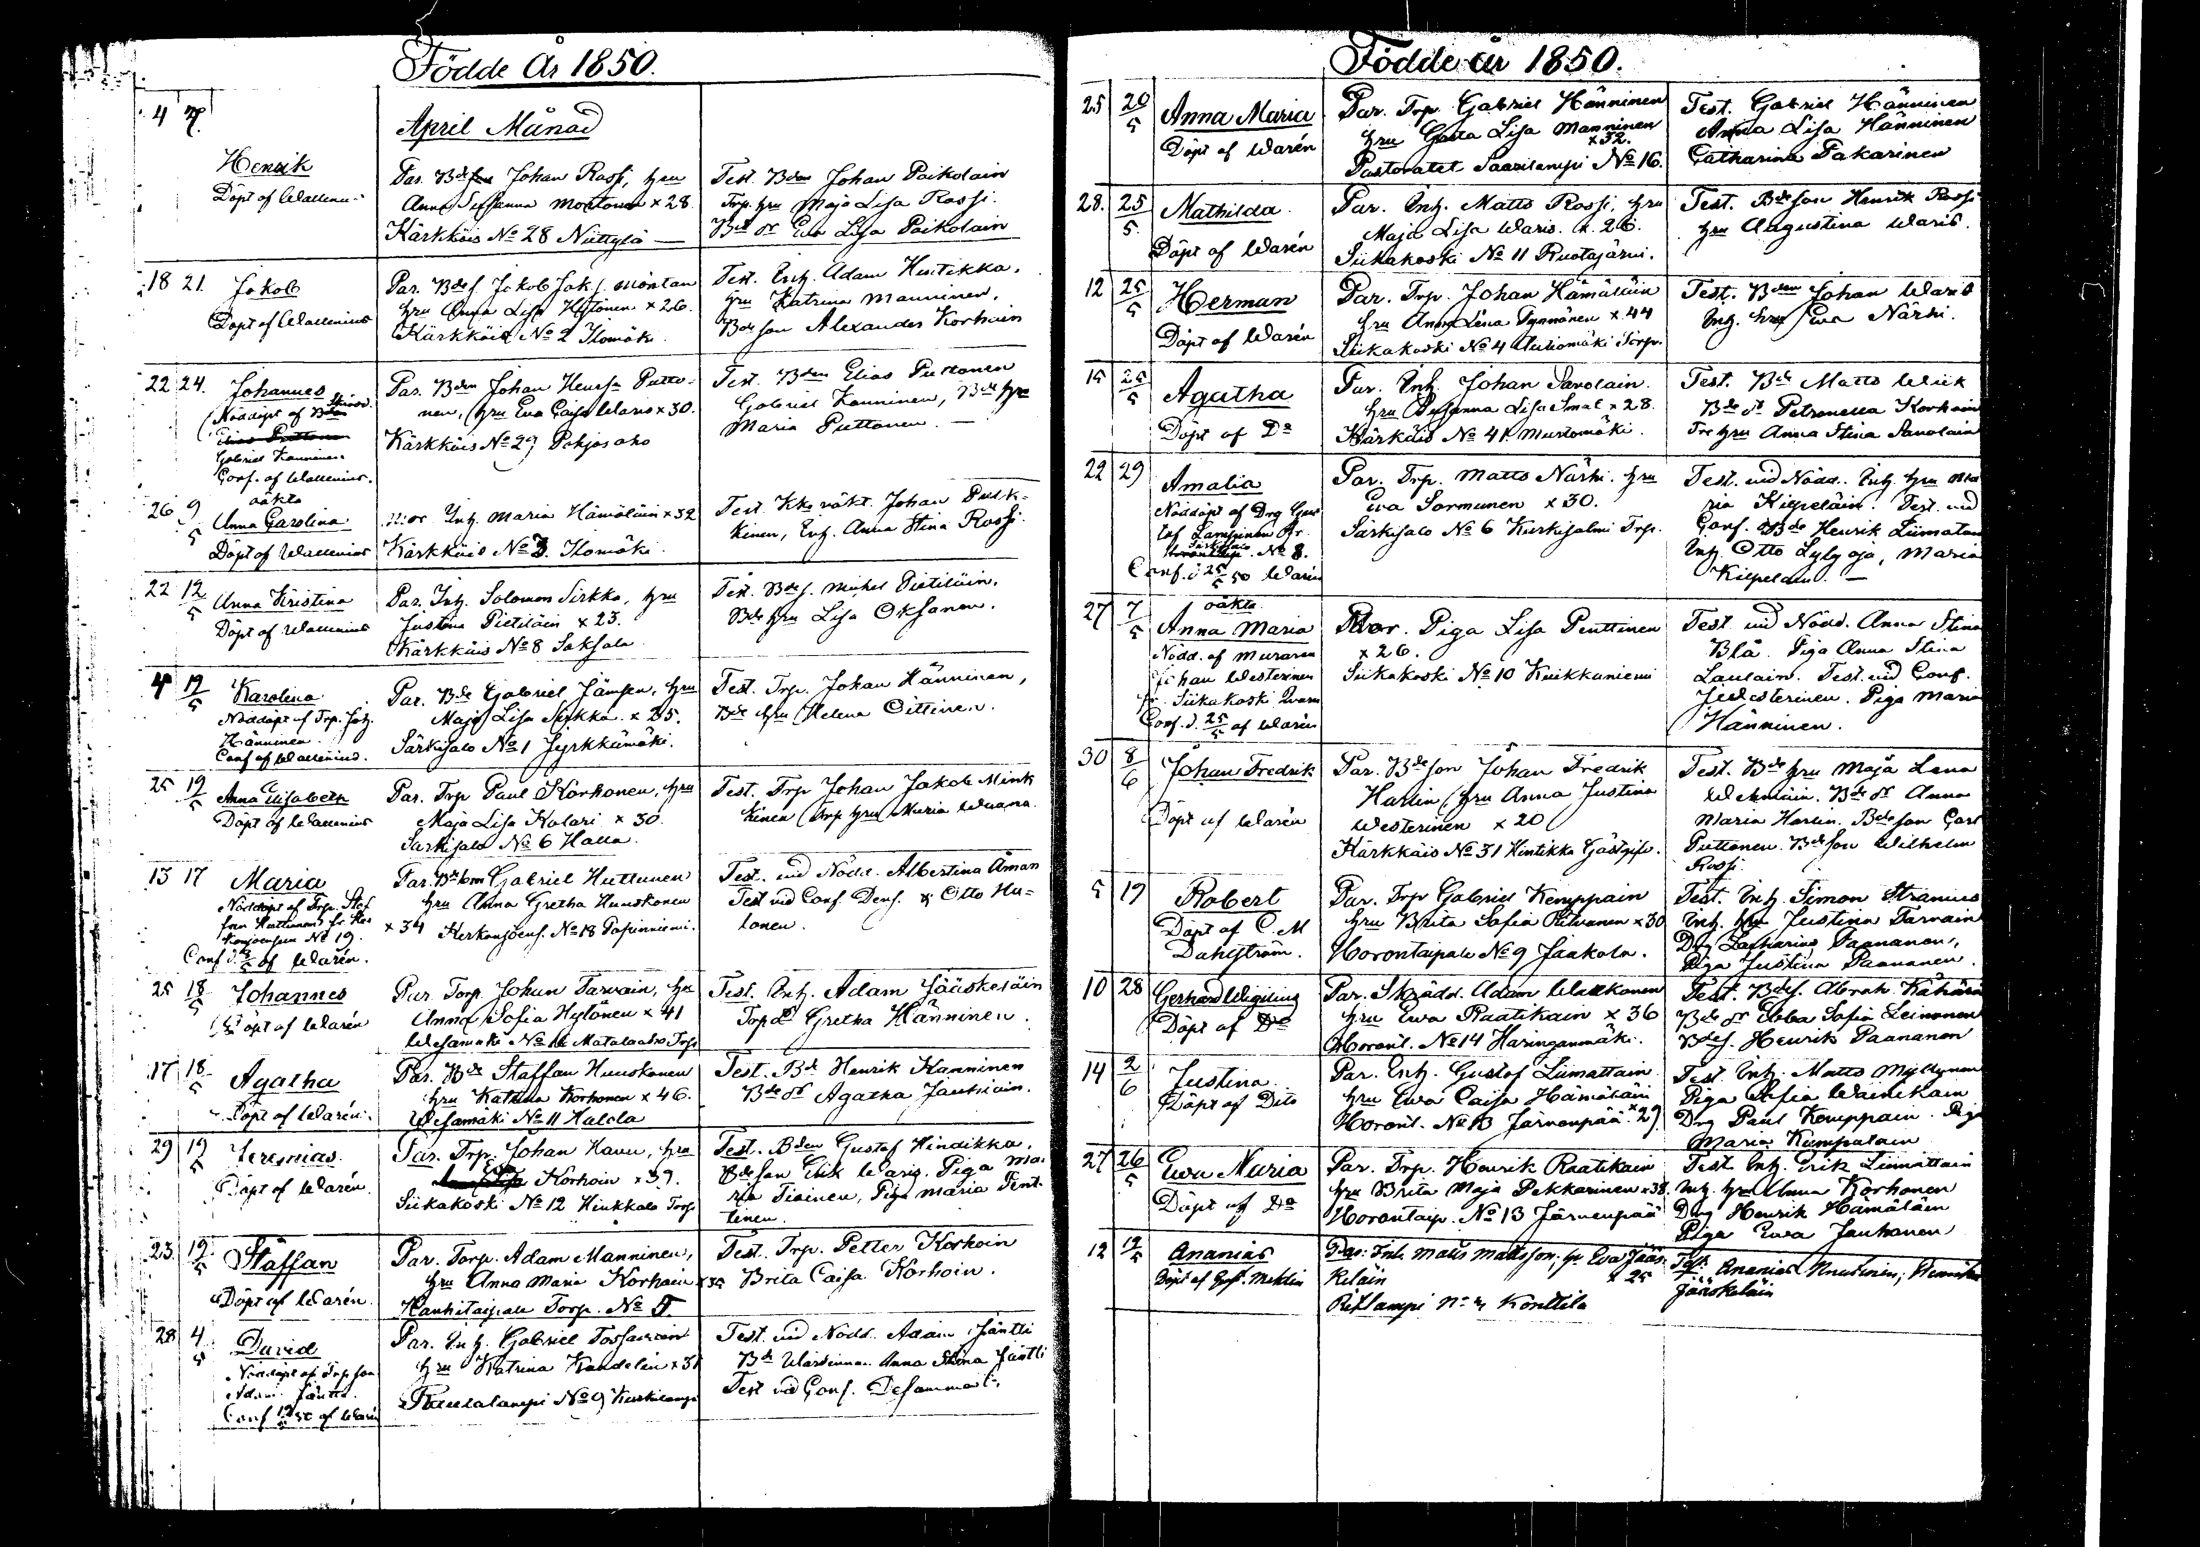 Födde År 1850.
4 7.
April Månad
Henrik
Döpt af Wallenius
Par. Bde Johan Rossi, hru
Anna Susanna Moetonen × 28.
Kärkkäis No 28 Niittylä
Test. Bden Johan Paikolain
Trp. hru Maja Lisa Rossi.
Bde dr Eva Lisa Paikolain
18 21. Jakob
Döpt af Wallenius
Par. Bdes. Jakob Jak.s. Möntän
hru Anna Lisa Hytönen × 26.
Kärkkäis No 2 Ilomäki
Test. Inh. Adam Hintikka.
hru Katrina Manninen.
Bde son Alexander Korhoin
22 24. Johannes
Nöddöpt af
Gabriel Kanninen
Conf. af Wallenius.
Par. Bden Johan Henrss Putto-
nen, hru Eva Caisa Waris × 30.
Kärkkäis No 29 Pohjosaho
Test. Bden Elias Puttonen
Gabriel Kanninen, Bde hru
Maria Puttonen.
26 9/5 oäkta
Anna Carolina
Döpt af Wallenius
Mor Inh. Maria Hämäläin × 32
Kärkkäis No 3. Ilomäki.
Test. Kkoväkt. Johan Pursk-
kinen, Inh. Anna Stina Rossi.
22 12/5 Anna Kristina
Döpt af Wallenius
Par. Inh. Solomon Sirkka, hru
Justina Pietiläin × 23.
Kärkkäis No 8 Saksala
Test. Bdes. Michel Pietiläin.
Bde hru Lisa Oksanen.
12/5 Karolina
Nöddöpt af Trp. Joh.
Hänninen.
Conf af Wallenius.
Par. Bde Gabriel Jämsen, hru
Maja Lisa Sirkka × 25.
Särkisalo No 1 Jyrkkämäki.
Test. Trp. Johan Hänninen,
Bde hru Helena Oittinen.
25 12/5 Anna Elisabeth
Döpt af Wallenius
Par. Trp Paul Korhonen, hru
Maja Lisa Kolari × 30.
Särkisalo No 6 Halla.
Test. Trp Johan Jakob Mink
kinen Trp hru Maria
13 17 Maria
Nöddöpt af Trp. Stef
fan Huttunen fr. Ker
konjoensuu No 19.
Conf. d. af Warén.
Par. Gabriel Huttunen
hru Anna Gretha Huuskonen
× 34 Kerkonjoens. No 18 Papinniemi.
Test. vid Nödd. Albertina Åman
Test vid Conf. Dens. & Otto Hu-
tonen.
25 18/5 Johannes
Döpt af Warén
Par. Torp. Johan Tarvain, hru
Anna Sofia Hytönen × 41
Wesamäki No Matalaaho Torp
Test. Inh. Adam Jääskeläin
Trp dr Gretha Hänninen.
17 18/5 Agatha
Döpt af Warén.
Par. Bde Staffan Huuskonen
hru Katrina Korhonen × 46.
Wesamäki No 11 Halola
Test. Bde Henrik Kanninen
Bde dr Agatha Jauhiain.
29 19/5 Jeremias.
Döpt af Warén.
Par. Trp. Johan Havu, hru
Korhoin × 39.
Siikakoski No 12 Hinkkala Torp
Test. Bden Gustaf Hindikka.
Bde son Erik Waris. Piga Ma-
ria Tiainen, Piga Maria Pent-
tinen.
23 19/5 Staffan
Döpt af Warén.
Par. Torp. Adam Manninen,
hru Anna Maria Korhoin × 35
Hankitaipale Torp. No 5.
Test. Trp. Petter Korhoin
Brita Caisa Korhoin.
28 4/5 David
Nöddöpt af Trp son
Adam Jäntti.
Conf 19/5 50 af Warén
Par. Inh. Gabriel Tossavain
hru Katrina Kandelin × 31
Rautalampi No 9 Kurkilampi
Test. vid Nödd. Adam Jäntti
Bde Wärdinnan Anna Stina Jäntti
Test vid Conf. Desamma.
Födde år 1850.
25 20/5 Anna Maria
Döpt af Warén
Par. Trp. Gabriel Hänninen
hru Gusta Lisa Manninen
× 32.
Pastoratet Saarilampi No 16.
Test. Gabriel Hänninen
Anna Lisa Hänninen
Catharina Pakarinen
28. 25/5 Mathilda.
Döpt af Warén
Par. Inh. Matts Rossi, hru
Maja Lisa Waris. × 26.
Siikakoski No 11 Ruotajärvi.
Test. Bde son Henrik Rossi
hru Augustina Waris.
12 25/5 Herman
Döpt af Warén
Par. Trp. Johan Hämäläin
hru Anna Lena Tynnönen × 44
Siikakoski No 4 Autiomäki Torp.
Test. Bden Johan Waris
Inh. hru Ewa Närhi.
15 25/5 Agatha
Döpt af Do
Par. Inh. Johan Savolain.
hru Susanna Lisa Smal × 28.
Kärkäis No 41. Murtomäki.
Test. Bde Matts Wiik
Bde dr Petronella Korhoin
Trp hru Anna Stina Savolain
22 29 Amalia
Nöddöpt af Drg Gus
taf Lampinen fr.
Särkisalo No 8.
Conf. d 25/5 50 Warén
Par. Trp. Matts Närhi. hru
Eva Sormunen × 30.
Särkisalo No 6 Kurkisalmi Trp.
Test. vid Nödd. Inh. hru Ma
ria Kilpeläin. Test. vid
Conf. Bde Henrik Liimatain
Inh. Otto Lylyoja, Maria
Kilpeläin.
27 7/5 oäkta
Anna Maria
Nödd. af Muraren
Johan Westerinen
fr. Siikakoski Qvarn
Conf. d. 25/5 af Warén
Mor. Piga Lisa Penttinen
× 26.
Siikakoski No 10 Kuikkaniemi
Test vid Nödd. Anna Stina
Blå. Piga Anna Stina
Laulain. Test. vid Conf.
J. Westerinen. Piga Maria
Hänninen.
30 8/6 Johan Fredrik
Döpt af Warén
Par. Bde son Johan Fredrik
Harlin, hru Anna Justina
Westerinen × 20
Kärkkäis No 31 Hintikka Gästgifv.
Test. Bde hru Maja Lena
Wehniäin. Bde dr Anna
Maria Harlin. Bde son Carl
Puttonen. Bde son Wilhelm
Rossi.
5 19 Robert
Döpt af C. M
Dahlström.
Par. Trp Gabriel Kemppain
hru Brita Sofia Ritvanen × 30
Horontaipale No 9 Jaakola.
Test. Inh. Simon Stranius
Inh. hru Justina Tarvain
Drg Zacharias Paananen,
Piga Justina Paananen.
10 28 Gerhard Wigilius
Döpt af Do
Par. Skrädd. Adam Wakkonen
hru Ewa Raatikain × 36
Horont. No 14 Haringanmäki.
Test. Bdes. Abrah. Kähärä
Bde dr Ebba Sofia Leinonen
Bdes. Henrik Paananen
14 2/6 Justina.
Döpt af Dito
Par. Inh. Gustaf Liimattain
hru Ewa Caisa Hämäläin
× 29
Horont. No 13 Järvenpää
Test. Inh. Matts Myllynen
Piga Sofia Wainikain
Drg Paul Kemppain. Piga
Maria Kumpulain
27 26/5 Ewa Maria
Döpt af Do
Par. Trp. Henrik Raatikain
hru Brita Maja Pekkarinen × 38.
Horontaip. No 13 Järvenpää
Test. Inh. Erik Liimattain
Inh. hru Anna Korhonen
Drg Henrik Hämäläin
Piga Ewa Jauhonen
12 12/5 Ananias
Döpt af Meklin
Par: Inh. Mats Matsson; hr Eva Jääs-
keläin × 25
Riklampi No 4 Konttila
Test: Ananias Nuutinen; Henrika
Jääskeläin